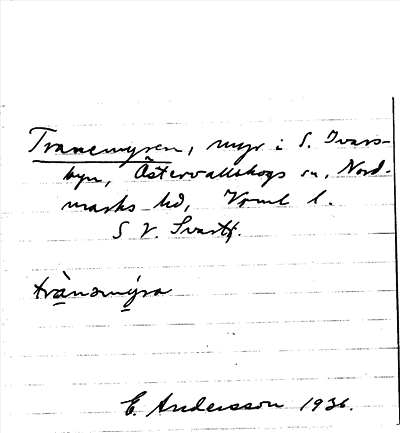 Tranemyren, myr i S. Ivars-
byn, Östervallskogs sn, Nord-
marks hd, Värml l.
S V. Svartt.
trànəmýra
E. Andersson 1936.